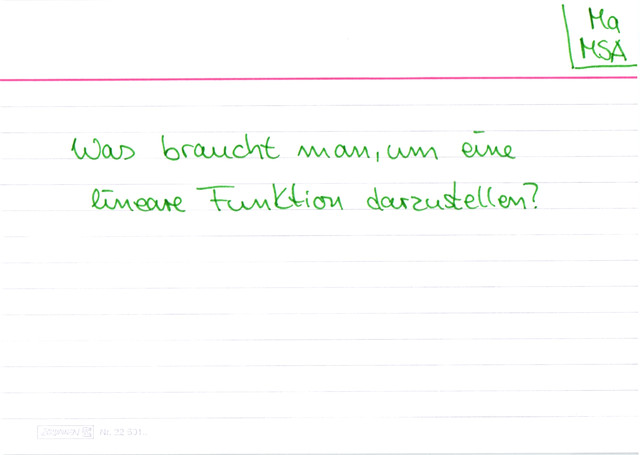 Ma
MSA
Was braucht man, um eine
lineare Funktion darzustellen?